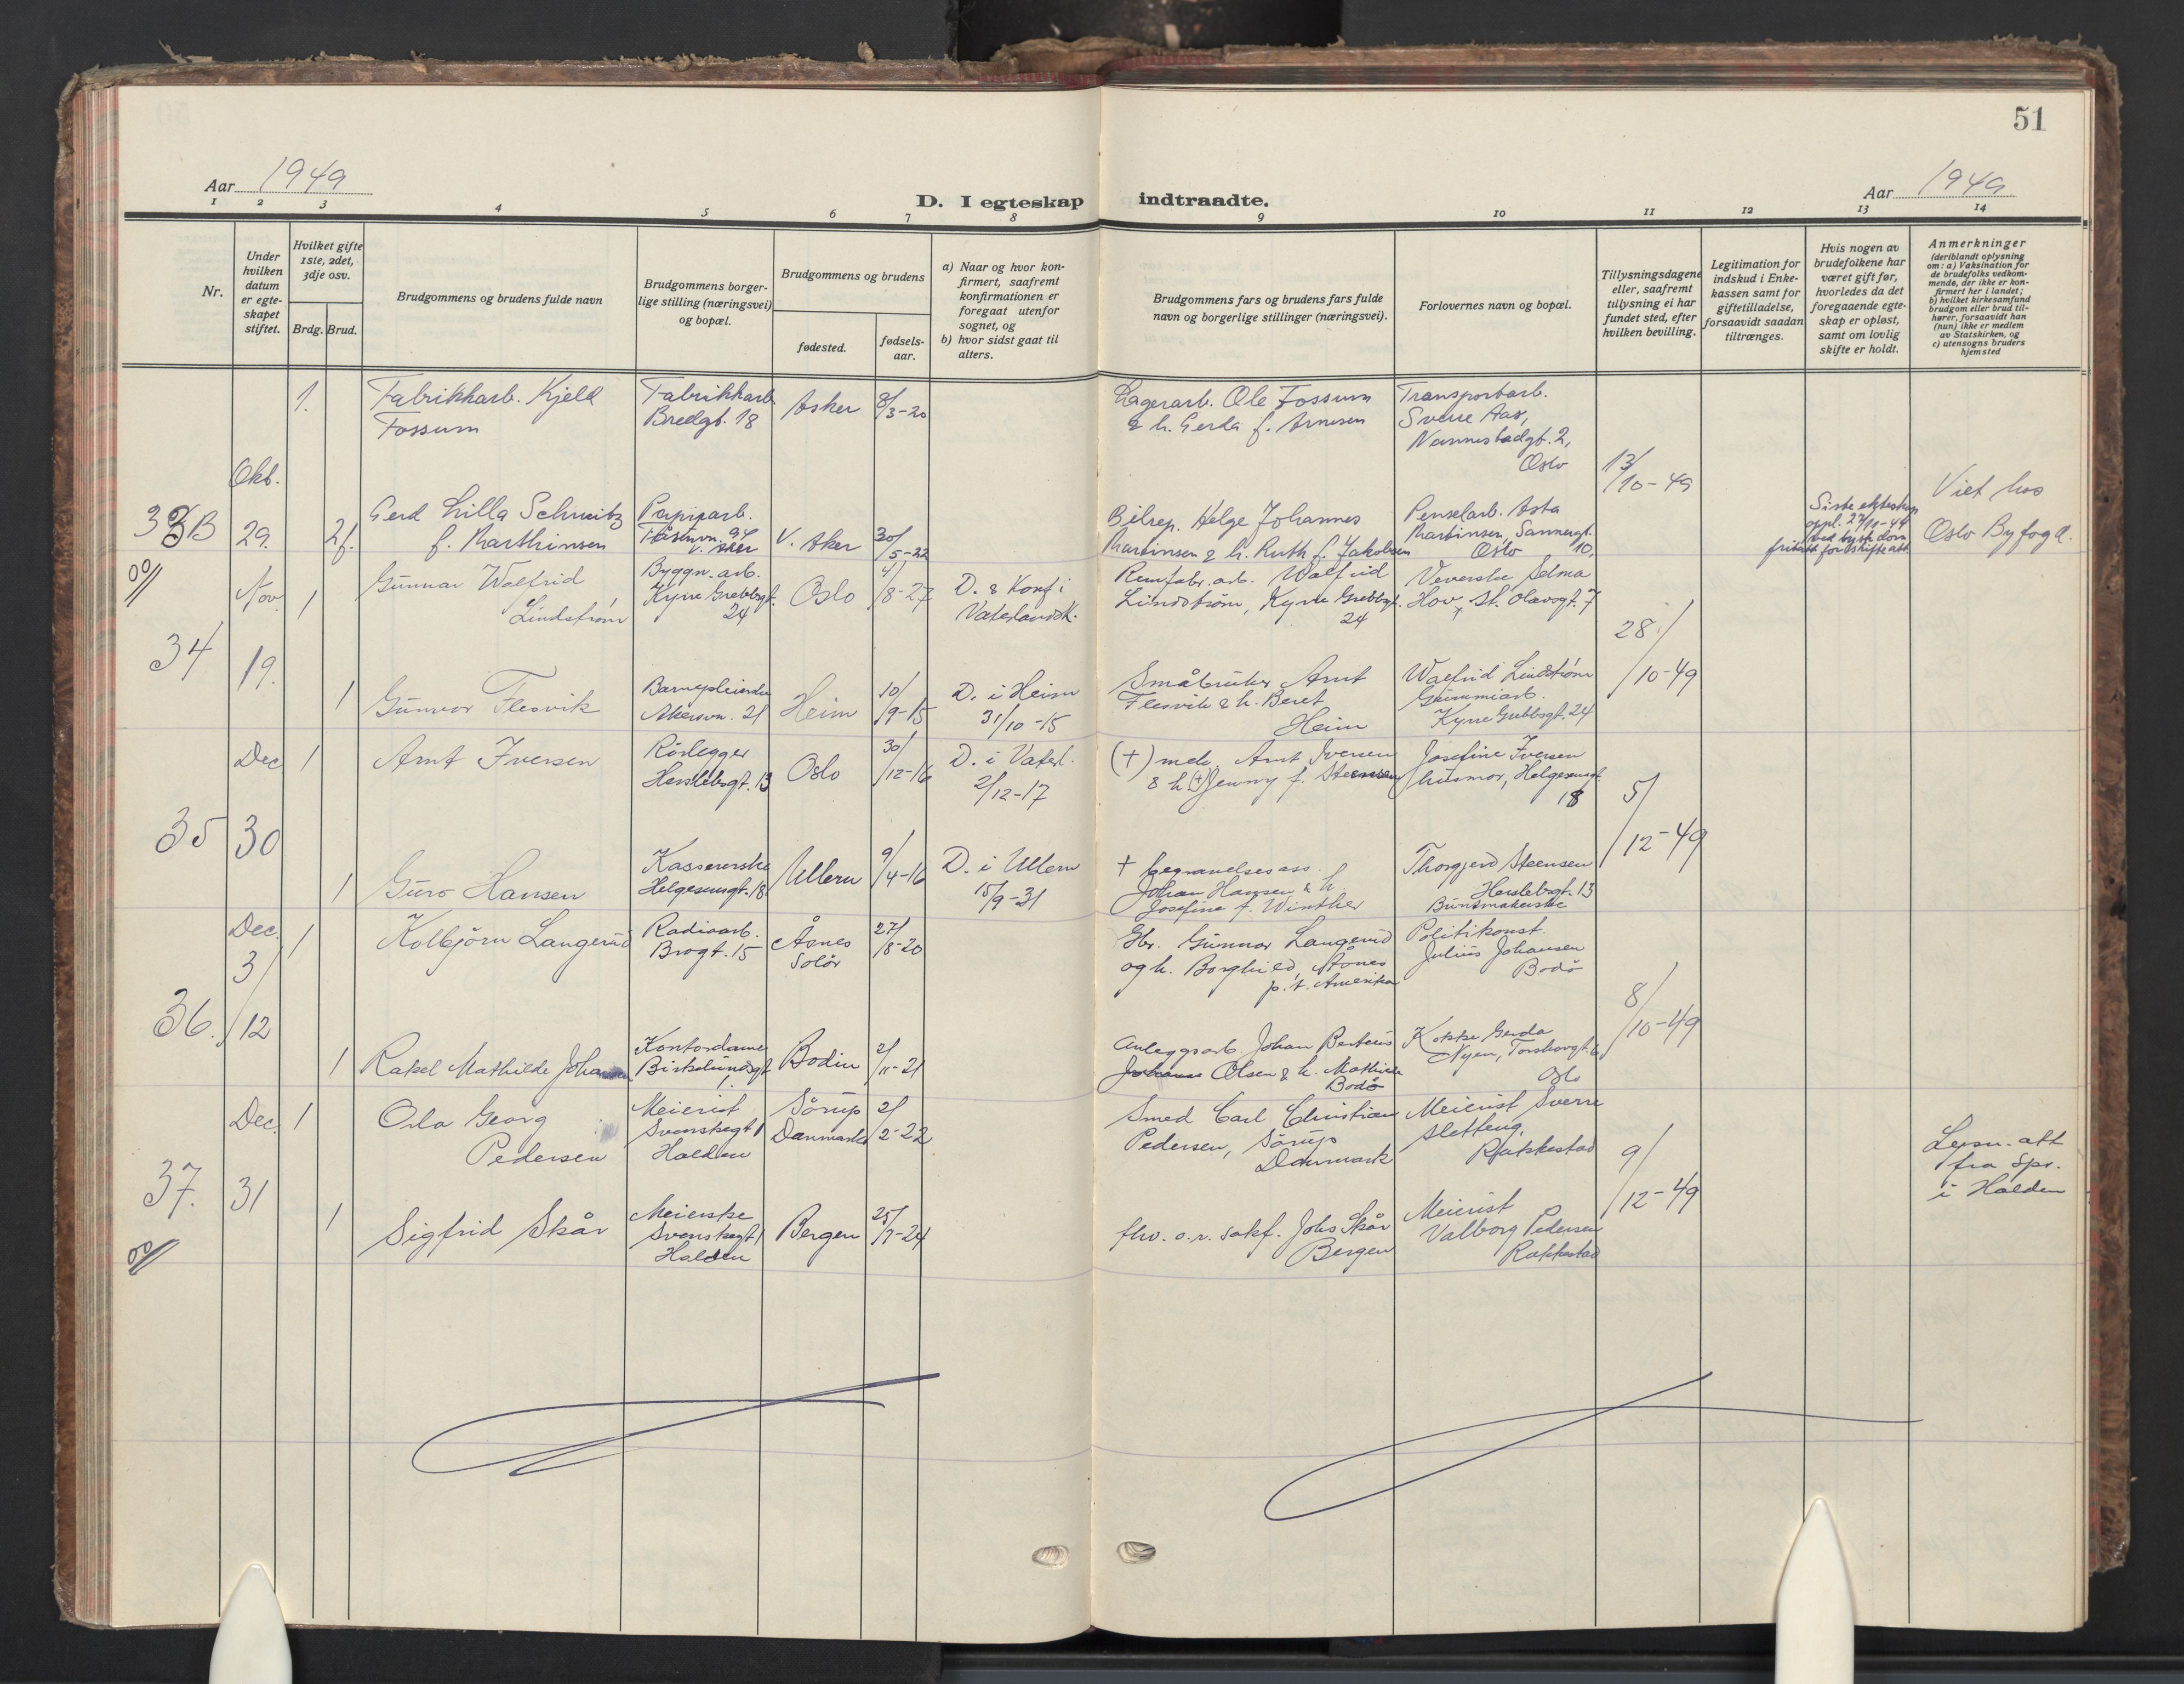 51
Aar 1949
D. I egteskap indtraadte.
Aar 1949
1 2 3 4 5 6 7 8 9 10 11 12 13 14
Nr.
Under hvilken datum er egteskapet stiftet.
Hvilket gifte 1ste, 2det, 3dje osv.
Brdg. Brud.
Brudgommens og brudens fulde navn
Brudgommens borgerlige stilling (næringsvei) og bopæl.
Brudgommens og brudens
fødested.
fødselsaar.
a) Naar og hvor konfirmert, saafremt konfirmationen er foregaat utenfor sognet, og
b) hvor sidst gaat til alters.
Brudgommens fars og brudens fars fulde navn og borgerlige stillinger (næringsvei).
Forlovernes navn og bopæl.
Tillysningsdagene eller, saafremt tillysning ei har fundet sted, efter hvilken bevilling.
Legitimation for indskud i Enkekassen samt for giftetilladelse, forsaavidt saadan tiltrænges.
Hvis nogen av brudefolkene har været gift før, hvorledes da det foregaaende egteskap er opløst, samt om lovlig skifte er holdt.
Anmerkninger
(deriblandt oplysning om: a) Vaksination for de brudefolks vedkommende, der ikke er konfirmert her i landet;
b) hvilket kirkesamfund brudgom eller brud tilhører, forsaavidt han (hun) ikke er medlem av Statskirken, og
c) utensogns bruders hjemsted
1.
Fabrikkarb. Kjeld
Fossum
Fabrikkarb.
Bredgt. 18
Asker
8/3-20
Lagerarb. Ole Fossum
& h. Gerda f. Arnesen
Transportarb.
Sverre Aas,
Nannestadgt. 2,
Oslo
33B
Okt.
29.
13/10-49
2f.
Gerd Lilla Schmitz
f. Marthinsen
Papiparb.
V. Aker
V. Aker
30/5-22
Bilrep. Helge Johannes
Martinsen & h. Ruth f. Jakobsen
Penselarb. Asta
Martinsen, Sannergt.
Oslo 10.
Siste ekteskap
oppl. 27/9-44
ved byr. dom
fritatt for skifteatt.
Viet hos
Oslo Byfogd.
34
Nov.
19.
1
Gunnar Walfrid
Lindstrøm
Byggn. arb.
Kyrre Grebbsgt.
24
Oslo
4/8-27
D. & Konf i
Vaterlandsk.
Remfabr. arb. Walfrid
Lindstrøm, Kyrre Grebbsgt.
24
Veverske Selma
Hov, St. Olavsgt. 7
28/10-49
1
Gunvor Flesvik
Barnepleierske
Akersvn. 21
Heim
10/9-15
D. i Heim
31/10-15
Småbruker Arnt
Flesvik & h. Beret
Heim
Walfrid Lindstrøm
Gummiarb.
Kyrre Grebbsgt. 24
35
Dec
30
1
Arnt Iversen
Rörlegger
Herslebsgt. 13
Oslo
30/12-16
D. i Vaterl.
2/12-17
(+) mek. Arnt Iversen
& h (+) Jenny f. Steensen
Josefine Iversen
husmor, Helgesensgt.
18
5/12-49
1
Guro Hansen
Kassererske
Helgesensgt. 18
Ullern
9/4-16
D. i Ullern
15/9-31
+ begravelsesass.
Johan Hansen & h.
Josefine f. Winther
Thorgjerd Steensen
Herslebsgt. 13
Buntmakerske
36.
Dec.
31/12
1
Kolbjørn Langerud
Radioarb.
Brogt. 15
Åsnes
Solör
27/8-20
Gbr. Gunnar Langerud
og h. Borghild, Åsnes
p.t. Amerika
Politikonst.
Julius Johansen
Bodö
8/10-49
1
Rakel Mathilde Johansen
Kontordame
Birkelundsgt
1.
Bodin
2/11-21
Anleggsarb. Johan Berteus
Olsen & h. Mathilde
Bodö
Kokke Gerda
Nyen, Torshovgt. 6
Oslo
37.
Dec.
31
1
Ola Georg
Pedersen
Meierist
Svenskegt 1
Halden
Sörup
Danmark
2/2-22
Smed Carl Christian
Pedersen, Sörup
Danmark
Meierist Sverre
Sletteng,
Rakkestad
9/12-49
Lysn. att
fra spr.
i Halden
1
Sigfrid Skår
Meierske
Svenskegt 1
Halden
Bergen
25/7-24
fhv. o.r. sakf. Johs Skår
Bergen
Meierist
Valborg Pedersen
Rakkestad